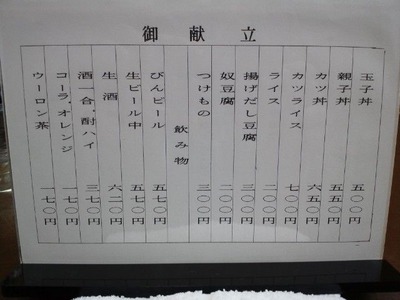 御献立
玉子丼 五〇〇円
親子丼 五五〇円
カツ丼 六五〇円
カツライス 七〇〇円
ライス 二〇〇円
揚げだし豆腐 三〇〇円
奴豆腐 二〇〇円
つけもの 三〇〇円
飲み物
びんビール 五七〇円
生ビール中 五七〇円
生酒 六二〇円
酒一合、酎ハイ 三七〇円
コーラ、オレンジ 一七〇円
ウーロン茶 一七〇円